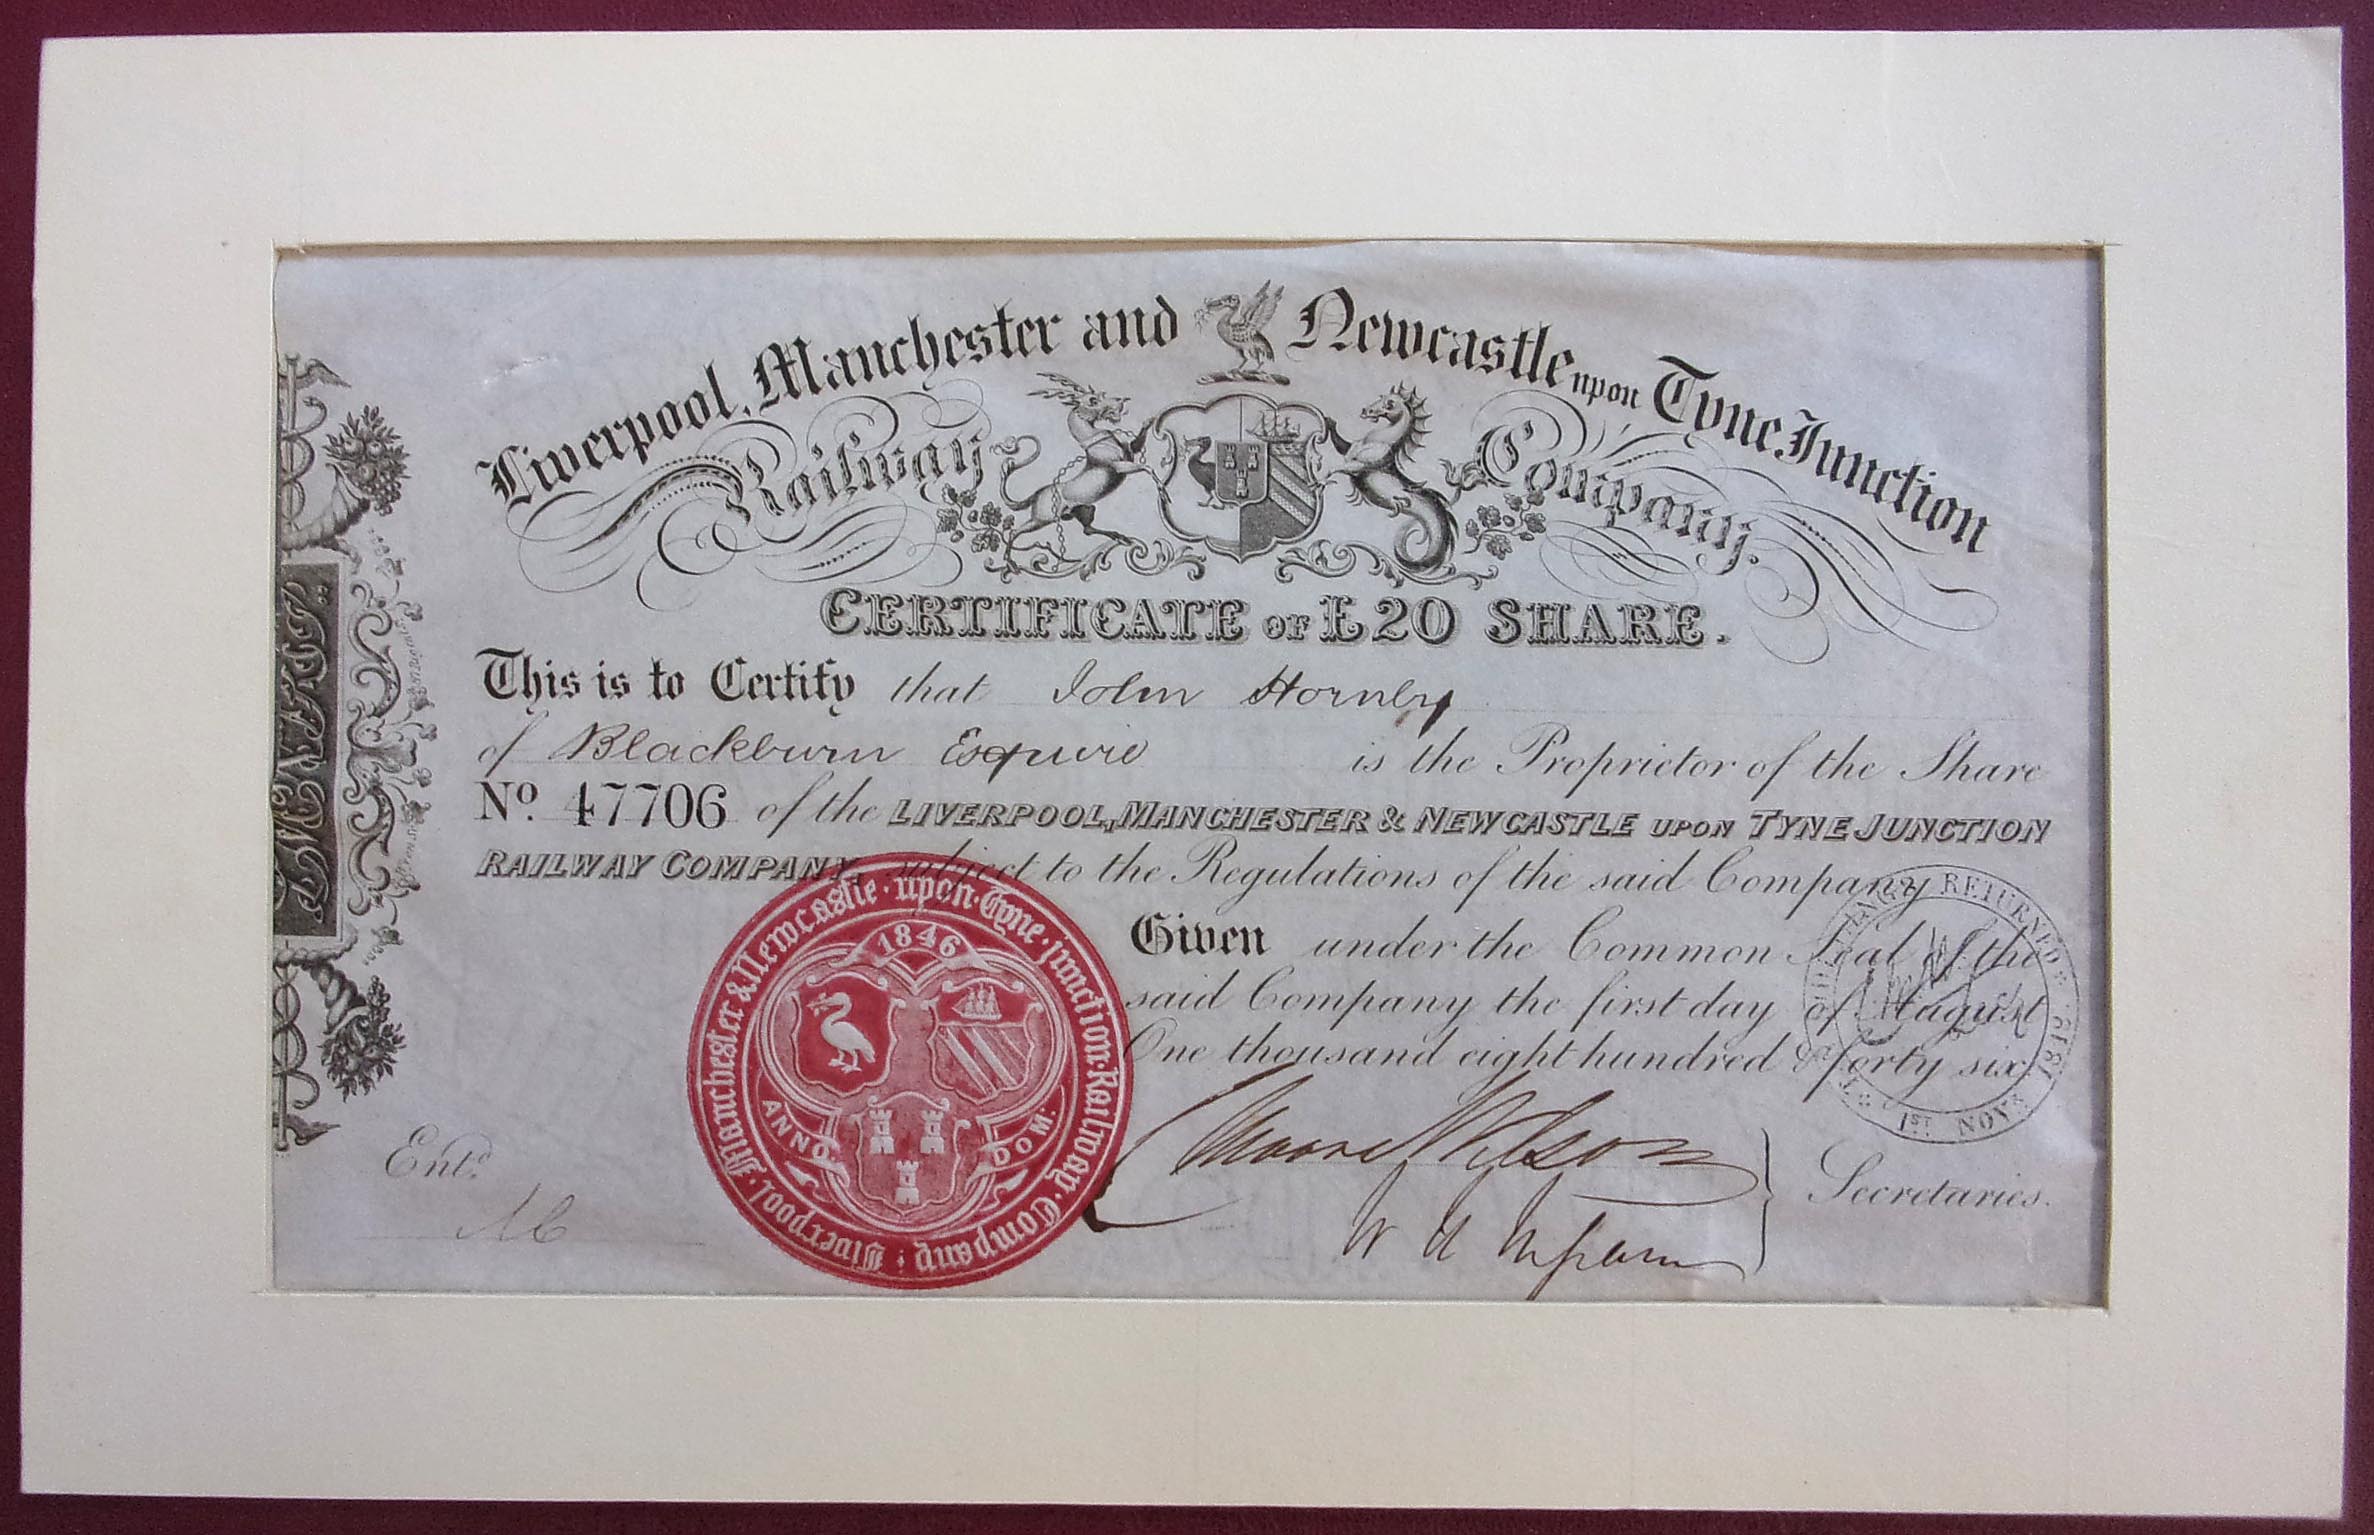 Liverpool, Manchester and Newcastle upon Tyne Junction
Railway Company.
CERTIFICATE OF £20 SHARE.
This is to Certify that John Hornby
of Blackburn Esquire is the Proprietor of the Share
No. 47706 of the LIVERPOOL, MANCHESTER & NEWCASTLE UPON TYNE JUNCTION
RAILWAY COMPANY, subject to the Regulations of the said Company
Given under the Common Seal of the
said Company the first day of August
One thousand eight hundred & forty six
Secretaries.
Entd.
Liverpool. Manchester & Newcastle. upon. Tyne. junction. Railway. Company
1846
ANNO. DOM.
RETURNED
1ST NOVR